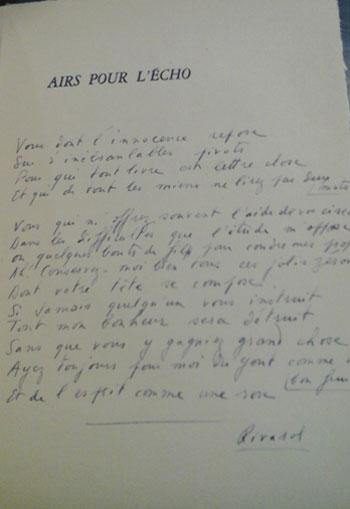 AIRS POUR L'ÉCHO
Vous dont l'innocence repose
Sur d'inébranlables pivots
Pour qui tout livre est lettre close
Et qui de tous les miens ne lisez pas deux
mots
Vous qui m'offrez souvent l'aide de vos cise
Dans les difficultés que l'étude m'oppose
ou quelques bouts de fil pour coudre mes prop
Ah! Conservez-moi bien tous ces jolis zéros
Dont votre tête se compose
Si jamais quelqu'un vous instruit
Tout mon bonheur sera détruit
Sans que vous y gagniez grand chose
Ayez toujours pour moi du goût comme
bon fru
Et de l'esprit comme une rose
Rivarol